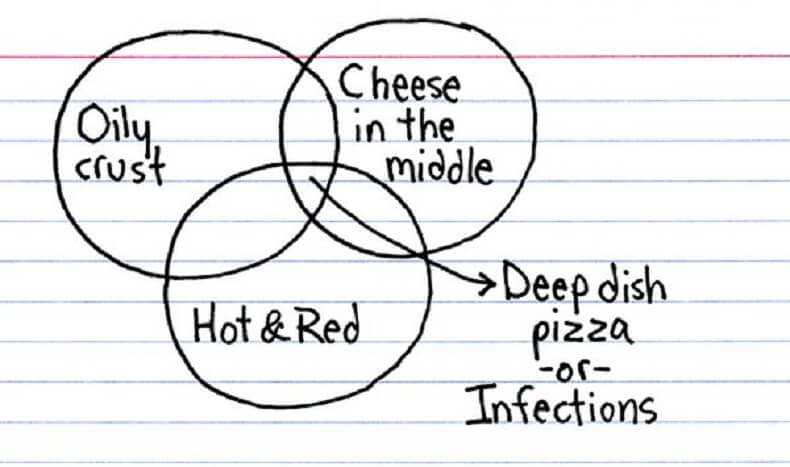 Oily
crust
Cheese
in the
middle
Hot & Red
Deep dish
pizza
-or-
Infections